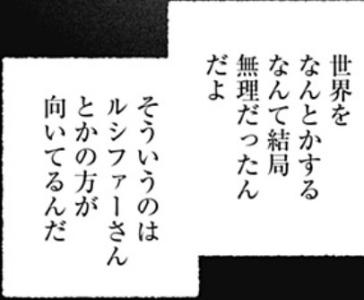 世界を
なんとかする
なんて結局
無理だったん
だよ
そういうのは
ルシファーさん
とかの方が
向いてるんだ